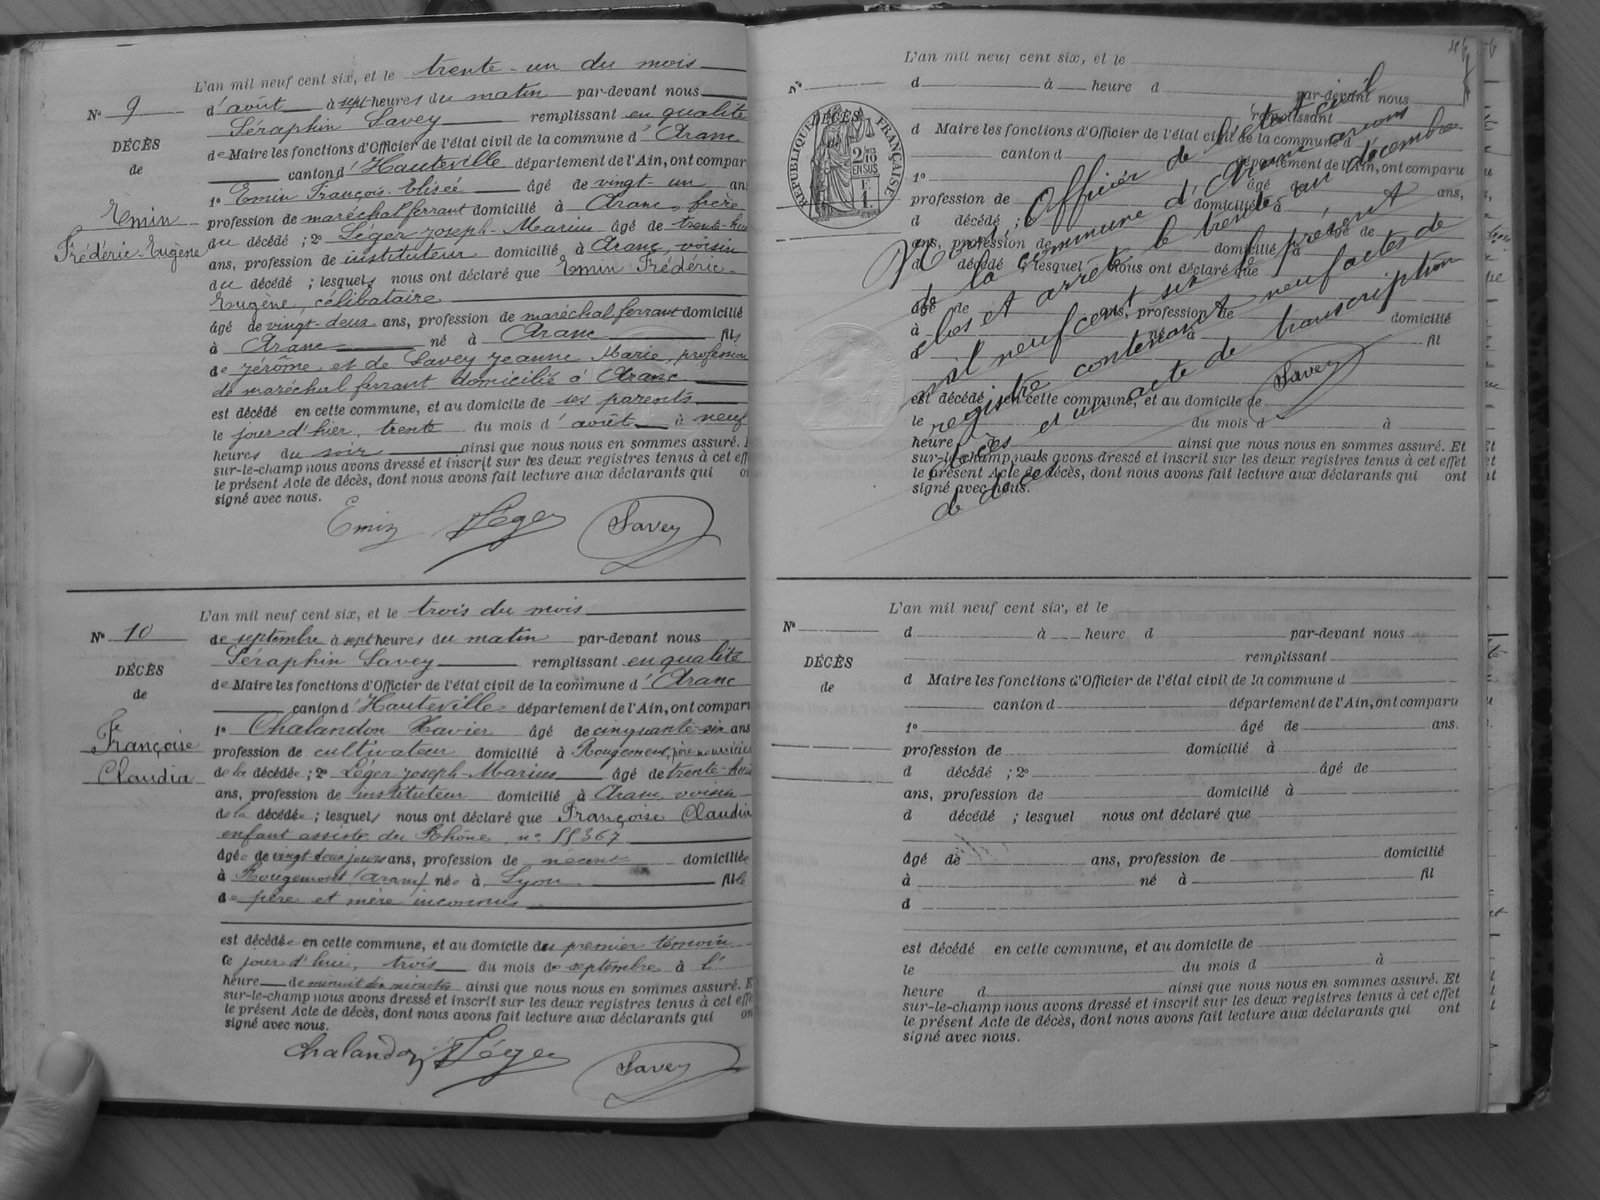 L'an mil neuf cent six, et le trente-un du mois
N° 9
d'août à sept heures du matin par-devant nous
Séraphin Savey remplissant en qualité
DÉCÈS
de Maire les fonctions d'Officier de l'état civil de la commune d'Aranc
de
canton d'Hauteville département de l'Ain, ont compar
1° Emin François-Elisée âgé de vingt-un ans
Emin
profession de maréchal ferrant domicilié à Aranc, frère
Frédéric-Eugène
du décédé ; 2° Léger Joseph-Marius âgé de trente-huit
ans, profession de instituteur domicilié à Aranc, voisin
du décédé ; lesquels nous ont déclaré que Emin Frédéric-
Eugène, célibataire
âgé de vingt-deux ans, profession de maréchal ferrant domicilié
à Aranc né à Aranc fils
de Jérôme et de Savey Jeanne Marie, profession
de maréchal ferrant domicilié à Aranc
est décédé en cette commune, et au domicile de ses parents
le jour d'hier, trente du mois d'août à neuf
heures du soir ainsi que nous nous en sommes assuré. E
sur-le-champ nous avons dressé et inscrit sur les deux registres tenus à cet eff
le présent Acte de décès, dont nous avons fait lecture aux déclarants qui on
signé avec nous.
Emin Léger Savey
L'an mil neuf cent six, et le trois du mois
N° 10
de septembre à sept heures du matin par-devant nous
Séraphin Savey remplissant en qualité
DÉCÈS
de Maire les fonctions d'Officier de l'état civil de la commune d'Aranc
de
canton d'Hauteville département de l'Ain, ont comparu
1° Chalandon Xavier âgé de cinquante-six ans
Françoise
profession de cultivateur domicilié à Rougemont, père nourricier
Claudia
de la décédée ; 2° Léger Joseph-Marius âgé de trente-huit
ans, profession de instituteur domicilié à Aranc voisin
de la décédée ; lesquels nous ont déclaré que Françoise Claudia
enfant assisté du Rhône, n°
âgée de vingt jours ans, profession de néant domiciliée
à Rougemont (Aranc) née à Lyon fille
de père et mère inconnus
est décédée en cette commune, et au domicile du premier témoin
ce jour d'hui, trois du mois de septembre à l'
heure de minuit dix minutes ainsi que nous nous en sommes assuré. E
sur-le-champ nous avons dressé et inscrit sur les deux registres tenus à cet effe
le présent Acte de décès, dont nous avons fait lecture aux déclarants qui on
signé avec nous.
Chalandon Léger Savey
L'an mil neuf cent six, et le
N°
d à heure d par-devant nous
DÉCÈS
remplissant
d Maire les fonctions d'Officier de l'état civil de la commune d
canton d département de l'Ain, ont comparu
RÉPUBLIQUE FRANÇAISE
2/10 EN SUS
1° âgé de ans,
profession de domicilié à
d décédé ; 2° âgé de
ans, profession de domicilié à
d décédé ; lesquel nous ont déclaré que
âgé de ans, profession de domicilié
à né à fil
d
est décédé en cette commune, et au domicile de
le du mois d à
heure d ainsi que nous nous en sommes assuré. Et
sur-le-champ nous avons dressé et inscrit sur les deux registres tenus à cet effet
le présent Acte de décès, dont nous avons fait lecture aux déclarants qui ont
signé avec nous.
Nous, Officier de l'état civil
de la commune d'Aranc avons
clos et arrêté le trente-un décembre
mil neuf cent six le présent
registre contenant neuf actes de
décès et un acte de transcription
de décès.
Savey
L'an mil neuf cent six, et le
N°
d à heure d par-devant nous
remplissant
DÉCÈS
d Maire les fonctions d'Officier de l'état civil de la commune d
de
canton d département de l'Ain, ont comparu
1° âgé de ans.
profession de domicilié à
d décédé ; 2° âgé de
ans, profession de domicilié à
d décédé ; lesquel nous ont déclaré que
âgé de ans, profession de domicilié
à né à fil
d
est décédé en cette commune, et au domicile de
le du mois d à
heure d ainsi que nous nous en sommes assuré. Et
sur-le-champ nous avons dressé et inscrit sur les deux registres tenus à cet effet
le présent Acte de décès, dont nous avons fait lecture aux déclarants qui ont
signé avec nous.